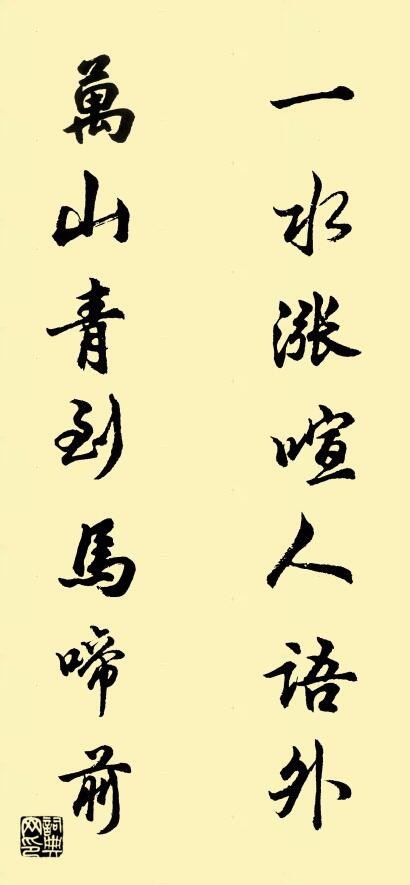 一水漲喧人語外
萬山青到馬啼前
詞典網印